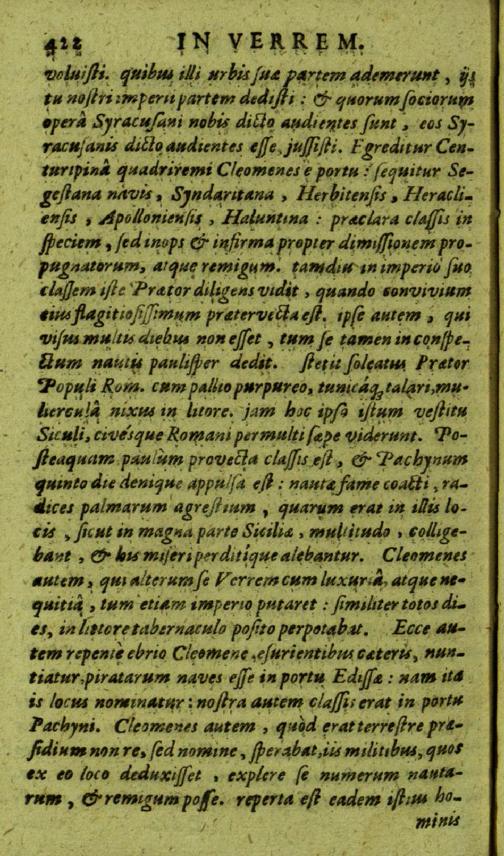 422 IN VERREM.
voluisti. quibus illi urbis suæ partem ademerunt, ijs
tu nostri imperii partem dedisti: & quorum sociorum
operâ Syracusani nobis dicto audientes sunt, eos Sy-
racusanis dicto audientes esse jussisti. Egreditur Cen-
turipinâ quadriremi Cleomenes e portu: sequitur Se-
gestana navis, Tyndaritana, Herbitensis, Heracli-
ensis, Apolloniensis, Haluntina: præclara classis in
speciem, sed inops & infirma propter dimissionem pro-
pugnatorum, atque remigum. tamdiu in imperio suo
classem iste Prætor diligens vidit, quando convivium
eius flagitiosissimum prætervecta est. ipse autem, qui
visus multis diebus non esset, tum se tamen in conspe-
ctum nautis paulisper dedit. stetit soleatus Prætor
Populi Rom. cum pallio purpureo, tunicâq; talari, mu-
lierculâ nixus in litore. jam hoc ipso istum vestitu
Siculi, civésque Romani permulti sæpe viderunt. Po-
steaquam paulum provecta classis est, & Pachynum
quinto die denique appulsa est: nautæ fame coacti, ra-
dices palmarum agrestium, quarum erat in illis lo-
cis, sicut in magna parte Siciliæ, multitudo, collige-
bant, & his miseri perditique alebantur. Cleomenes
autem, qui alterum se Verrem cum luxuriâ, atque ne-
quitiâ, tum etiam imperio putaret: similiter totos di-
es, in littore tabernaculo posito perpotabat. Ecce au-
tem repente ebrio Cleomene, esurientibus cæteris, nun-
tiatur, piratarum naves esse in portu Edissæ: nam ita
is locus nominatur: nostra autem classis erat in portu
Pachyni. Cleomenes autem, quòd erat terrestre præ-
sidium non re, sed nomine, sperabat, iis militibus, quos
ex eo loco deduxisset, explere se numerum nauta-
rum, & remigum posse. reperta est eadem istius ho-
minis